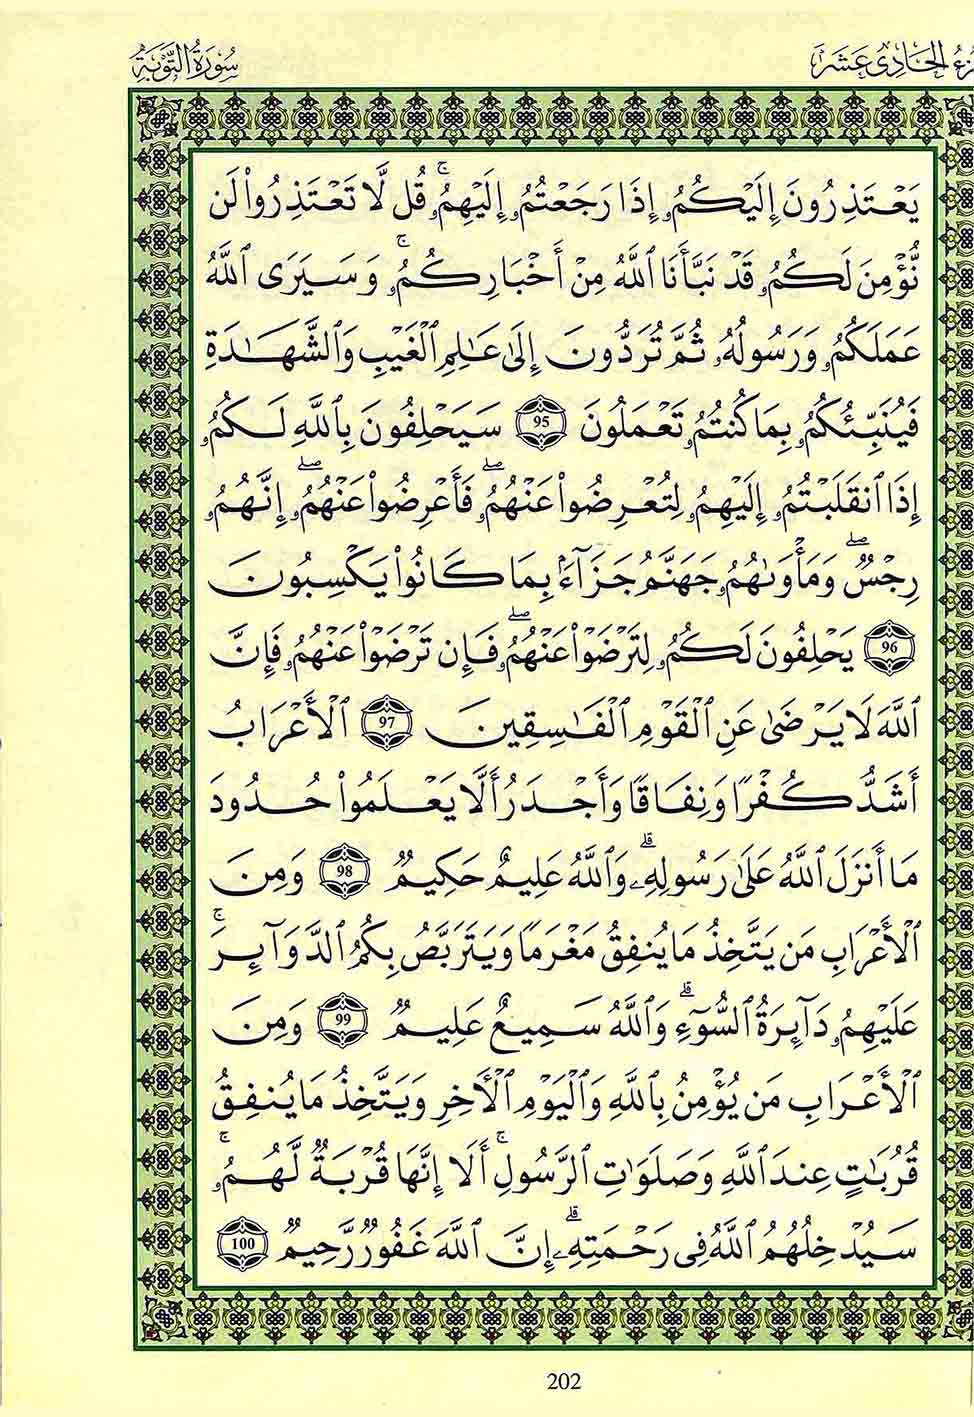 سُورَةُ التَّوْبَةِ
الحَادِى عَشَرَ
يَعْتَذِرُونَ إِلَيْكُمُۥ إِذَا رَجَعْتُمُۥ إِلَيْهِمُۥۚ قُل لَّا تَعْتَذِرُواْ لَن
نُّؤْمِنَ لَكُمُۥ قَدْ نَبَّأَنَا ٱللَّهُ مِنْ أَخْبَارِكُمُۥۚ وَسَيَرَى ٱللَّهُ
عَمَلَكُمُۥ وَرَسُولُهُۥ ثُمَّ تُرَدُّونَ إِلَىٰ عَٰلِمِ ٱلْغَيْبِ وَٱلشَّهَٰدَةِ
فَيُنَبِّئُكُمُۥ بِمَا كُنتُمُۥ تَعْمَلُونَ 95 سَيَحْلِفُونَ بِٱللَّهِ لَكُمُۥ
إِذَا ٱنقَلَبْتُمُۥ إِلَيْهِمُۥ لِتُعْرِضُواْ عَنْهُمُۥۖ فَأَعْرِضُواْ عَنْهُمُۥۖ إِنَّهُمُۥ
رِجْسٌۖ وَمَأْوَىٰهُمُۥ جَهَنَّمُ جَزَآءَۢ بِمَا كَانُواْ يَكْسِبُونَ
96 يَحْلِفُونَ لَكُمُۥ لِتَرْضَوْاْ عَنْهُمُۥۖ فَإِن تَرْضَوْاْ عَنْهُمُۥ فَإِنَّ
ٱللَّهَ لَا يَرْضَىٰ عَنِ ٱلْقَوْمِ ٱلْفَٰسِقِينَ 97 ٱلْأَعْرَابُ
أَشَدُّ كُفْرًا وَنِفَاقًا وَأَجْدَرُ أَلَّا يَعْلَمُواْ حُدُودَ
مَا أَنزَلَ ٱللَّهُ عَلَىٰ رَسُولِهِۦۗ وَٱللَّهُ عَلِيمٌ حَكِيمٌ 98 وَمِنَ
ٱلْأَعْرَابِ مَن يَتَّخِذُ مَا يُنفِقُ مَغْرَمًا وَيَتَرَبَّصُ بِكُمُ ٱلدَّوَآئِرَۚ
عَلَيْهِمُۥ دَآئِرَةُ ٱلسُّوٓءِۗ وَٱللَّهُ سَمِيعٌ عَلِيمٌ 99 وَمِنَ
ٱلْأَعْرَابِ مَن يُؤْمِنُ بِٱللَّهِ وَٱلْيَوْمِ ٱلْأٓخِرِ وَيَتَّخِذُ مَا يُنفِقُ
قُرُبَٰتٍ عِندَ ٱللَّهِ وَصَلَوَٰتِ ٱلرَّسُولِۚ أَلَا إِنَّهَا قُرْبَةٌ لَّهُمُۥۚ
سَيُدْخِلُهُمُ ٱللَّهُ فِى رَحْمَتِهِۦۗ إِنَّ ٱللَّهَ غَفُورٌ رَّحِيمٌ 100
202